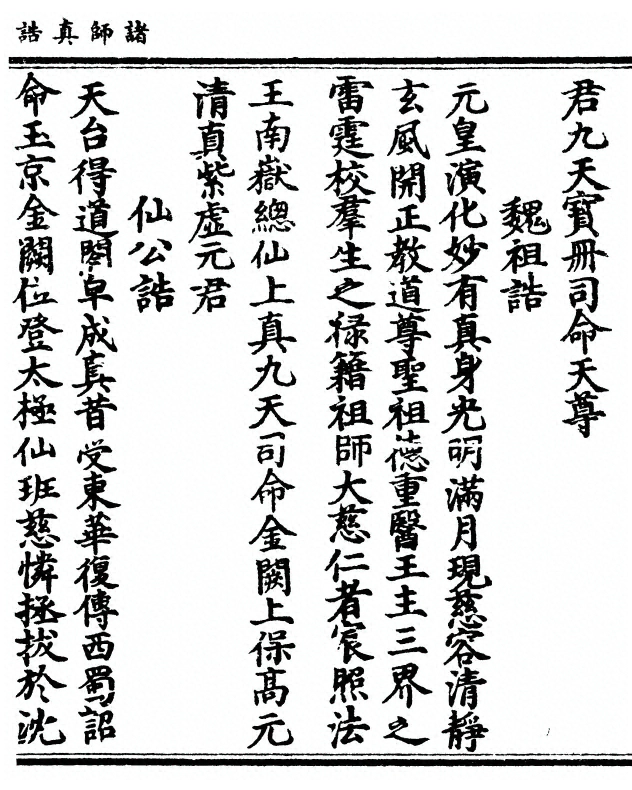 諸師真誥
君九天寳冊司命天尊
魏祖誥
元皇演化妙有真身光明滿月現慈容清靜
玄風開正教道尊聖祖德重醫王主三界之
雷霆校羣生之祿籍祖師大慈仁者宸照法
王南嶽總仙上真九天司命金闕上保高元
清真紫虛元君
仙公誥
天台得道閣皁成真昔受東華復傳西蜀詔
命玉京金闕位登太極仙班慈憐拯拔於沈